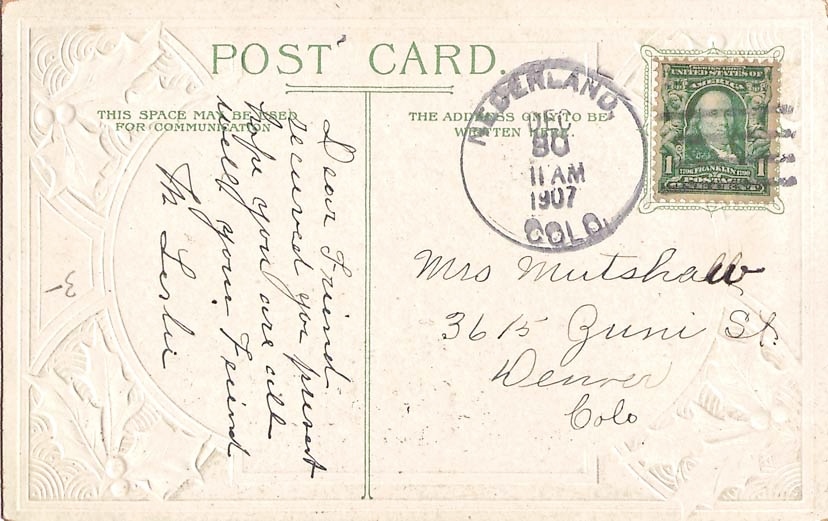 POST CARD.
THIS SPACE MAY BE USED
FOR COMMUNICATION
THE ADDRESS ONLY TO BE
WRITTEN HERE.
NEDERLAND,
DEC
30
11 AM
1907
COLO.
UNITED STATES OF
AMERICA
1 1
FRANKLIN
POSTAGE
ONE CENT
Dear Friend
recieved you present
hope you are all
well your Friend
Th Leslie
Mrs Mutshaw
3615 Zuni St.
Denver
Colo
3-